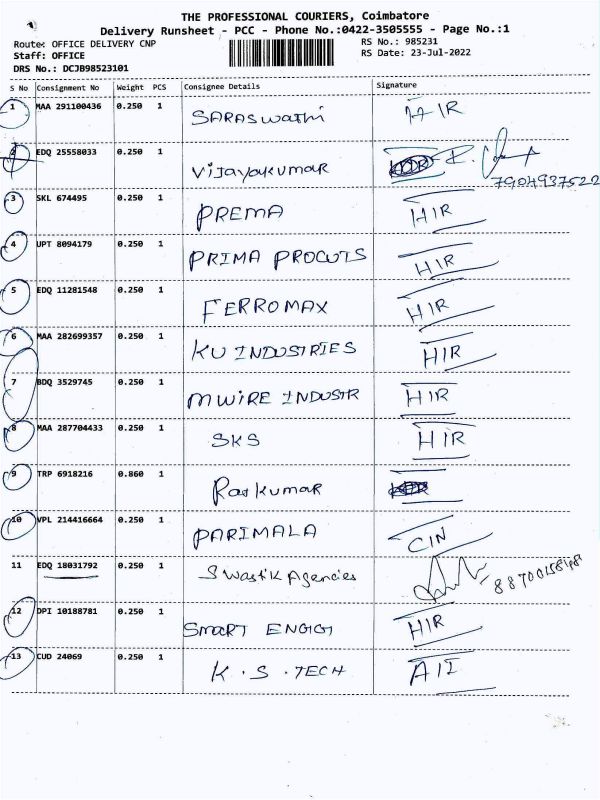 THE PROFESSIONAL COURIERS, Coimbatore
Delivery Runsheet - PCC - Phone No.:0422-3505555 - Page No.:1
Route: OFFICE DELIVERY CNP RS No.: 985231
Staff: OFFICE RS Date: 23-Jul-2022
DRS No.: DCJB98523101
S No Consignment No Weight PCS Consignee Details Signature
1 MAA 291100436 0.250 1 SARASWAThi HIR
2 EDQ 25558033 0.250 1 Vijayakumar
7904937522
3 SKL 674495 0.250 1 PREMA HIR
4 UPT 8094179 0.250 1 PRIMA PROCUTS HIR
5 EDQ 11281548 0.250 1 FERROMAX HIR
6 MAA 282699357 0.250 1 KU INDUSTRIES HIR
7 BDQ 3529745 0.250 1 MWIRE INDUSTR HIR
8 MAA 287704433 0.250 1 SKS HIR
9 TRP 6918216 0.860 1 Rajkumar
10 VPL 214416664 0.250 1 PARIMALA CIN
11 EDQ 18031792 0.250 1 Swastik Agencies
12 DPI 10188781 0.250 1 SMART ENGIGI HIR
13 CUD 24069 0.250 1 K.S.TECH AII